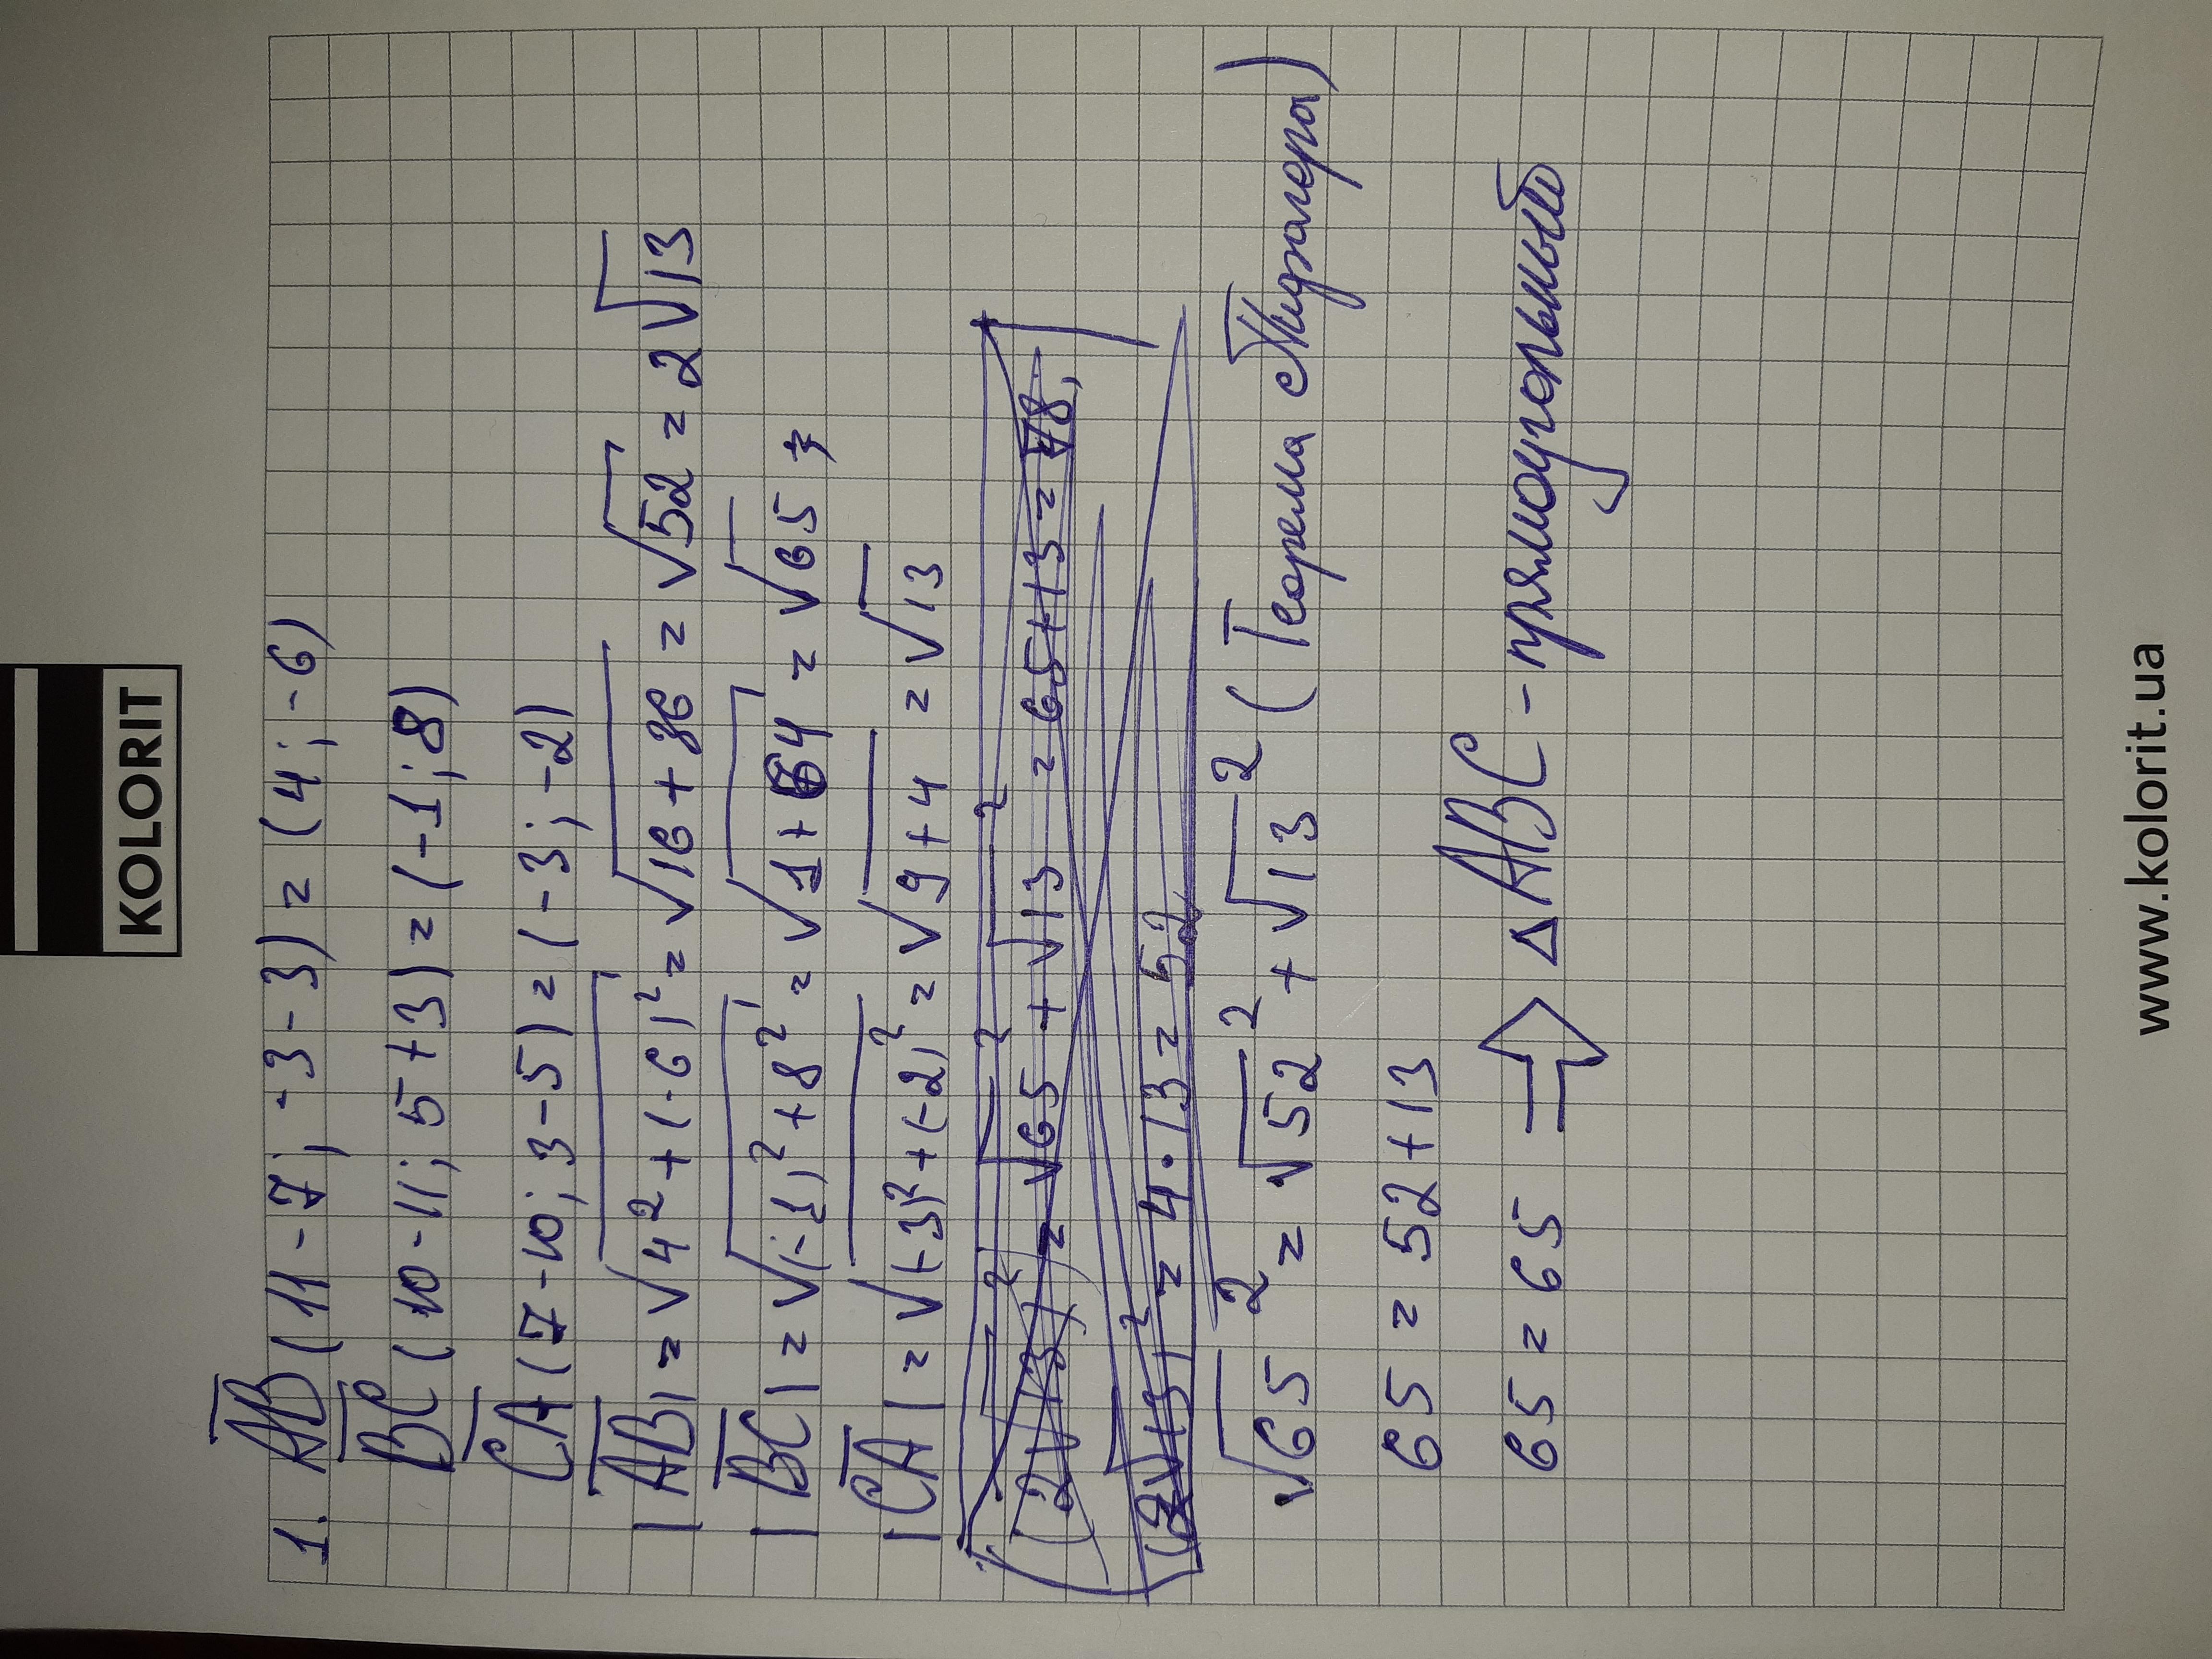 KOLORIT
1. AB (11-7; -3-3) = (4; -6)
BC (10-11; 5+3) = (-1; 8)
CA (7-10; 3-5) = (-3; -2)
|AB| = √4² + (-6)² = √16+36 = √52 = 2√13
|BC| = √(-1)² + 8² = √1+64 = √65
|CA| = √(-3)² + (-2)² = √9+4 = √13
(2√13)² = √65² + √13² = 65+13 = 78,
(2√13)² = 4·13 = 52
√65² = √52² + √13² (Теорема Пифагора)
65 = 52+13
65 = 65 ⇒ △ABC - прямоугольный
www.kolorit.ua